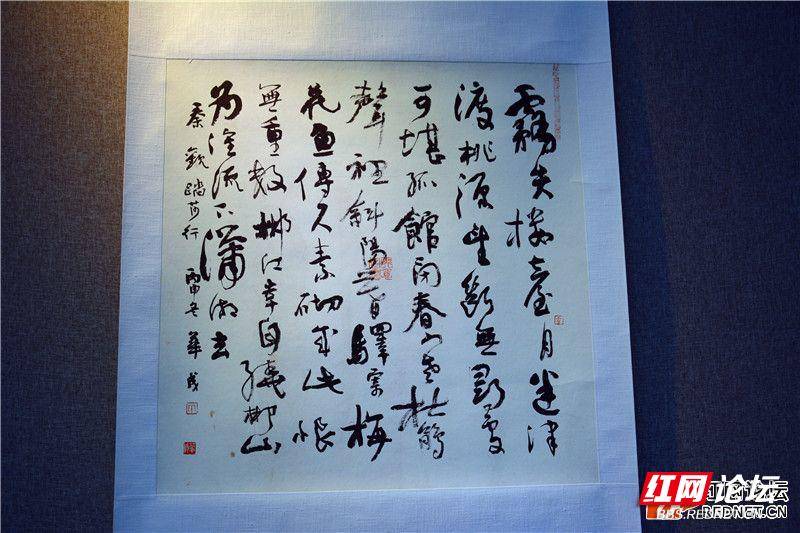 霧失樓臺月迷津
渡桃源望斷無尋處
可堪孤館閉春寒杜鵑
聲裡斜陽暮驛寄梅
花魚傳尺素砌成此恨
無重數郴江幸自繞郴山
為誰流下瀟湘去
秦觀踏莎行 丙申冬
红网论坛
REDNET.CN